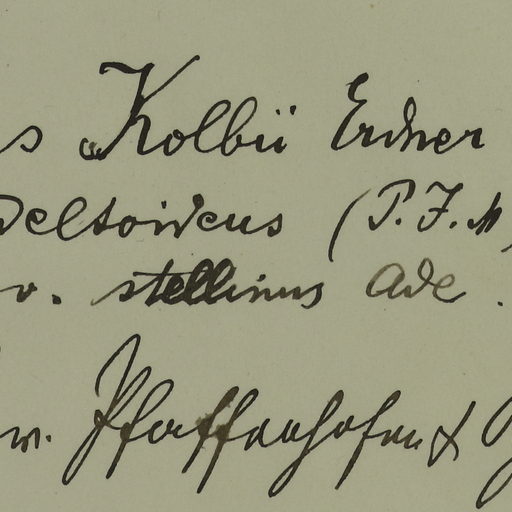 s Kolbii Erdner
deltoideus (P.J.M
v. stellinus Ade.
w. Pfaffenhofen &